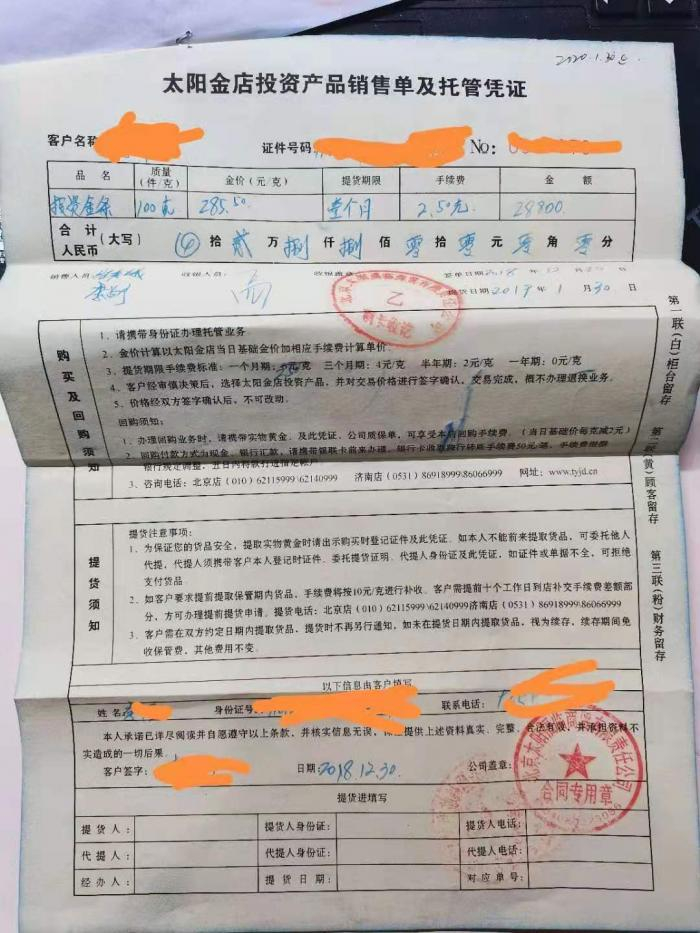 2020.1.30
太阳金店投资产品销售单及托管凭证
客户名称
证件号码
No:
品 名 质量(件/克) 金价(元/克) 提货期限 手续费 金 额
投资金条 100克 285.50 壹个月 2.50元 28800
合计人民币 (大写) 拾 贰 万 捌 仟 捌 佰 零 拾 零 元 零 角 零 分
销售人员 收银人员: 收银盖章 签单日期2018 年 12 30 日
提货日期2019 年 1 月 30 日
乙
刷卡收讫
购买及回购须知
1、请携带身份证办理托管业务。
2、金价计算以太阳金店当日基础金价加相应手续费计算单价。
3、提货期限手续费标准:一个月期: 元/克 三个月期:4元/克 半年期:2元/克 一年期:0元/克
4、客户经审慎决策后,选择太阳金店投资产品,并对交易价格进行签字确认,交易完成,概不办理退换业务。
5、价格经双方签字确认后,不可改动。
回购须知:
1、办理回购业务时,请携带实物黄金、及此凭证,公司质保单,可享受本店回购手续费。(当日基础价每克减2元)
2、回购付款方式为现金、银行汇款,请携带银联卡前来办理,银行卡收取跨行转账手续费50元/笔,手续费根据
银行规定调整,五日内将款打进指定帐户
3、咨询电话:北京店(010)62115999\62140999 济南店(0531)86918999\86066999 网址:www.tyjd.cn
提货须知
提货注意事项:
1、为保证您的货品安全,提取实物黄金时请出示购买时登记证件及此凭证。如本人不能前来提取货品,可委托他人
代提,代提人须携带客户本人登记时证件、委托提货证明、代提人身份证及此凭证,如证件或单据不全,可拒绝
支付货品
2、如客户要求提前提取保管期内货品,手续费将按10元/克进行补收。客户需提前十个工作日到店补交手续费差额部
分,方可办理提前提货申请。提货电话:北京店(010)62115999\62140999济南店(0531)86918999\86066999
3、客户需在双方约定日期内提取货品,提货时不再另行通知,如未在提货日期内提取货品,视为续存,续存期间免
收保管费,其他费用不变。
以下信息由客户填写
姓名 身份证号: 联系电话:
本人承诺已详尽阅读并自愿遵守以上条款,并核实信息无误,保证提供上述资料真实、完整、合法有效,并承担资料不
实造成的一切后果。
客户签字: 日期:2018.12.30 公司盖章:
合同专用章
提货进填写
提 货 人: 提货人身份证: 提货人电话:
代 提 人: 代提人身份证: 代提人电话:
经 办 人: 提 货 日 期: 对 应 单 号:
第一联(白)柜台留存
第二联(黄)顾客留存
第三联(粉)财务留存